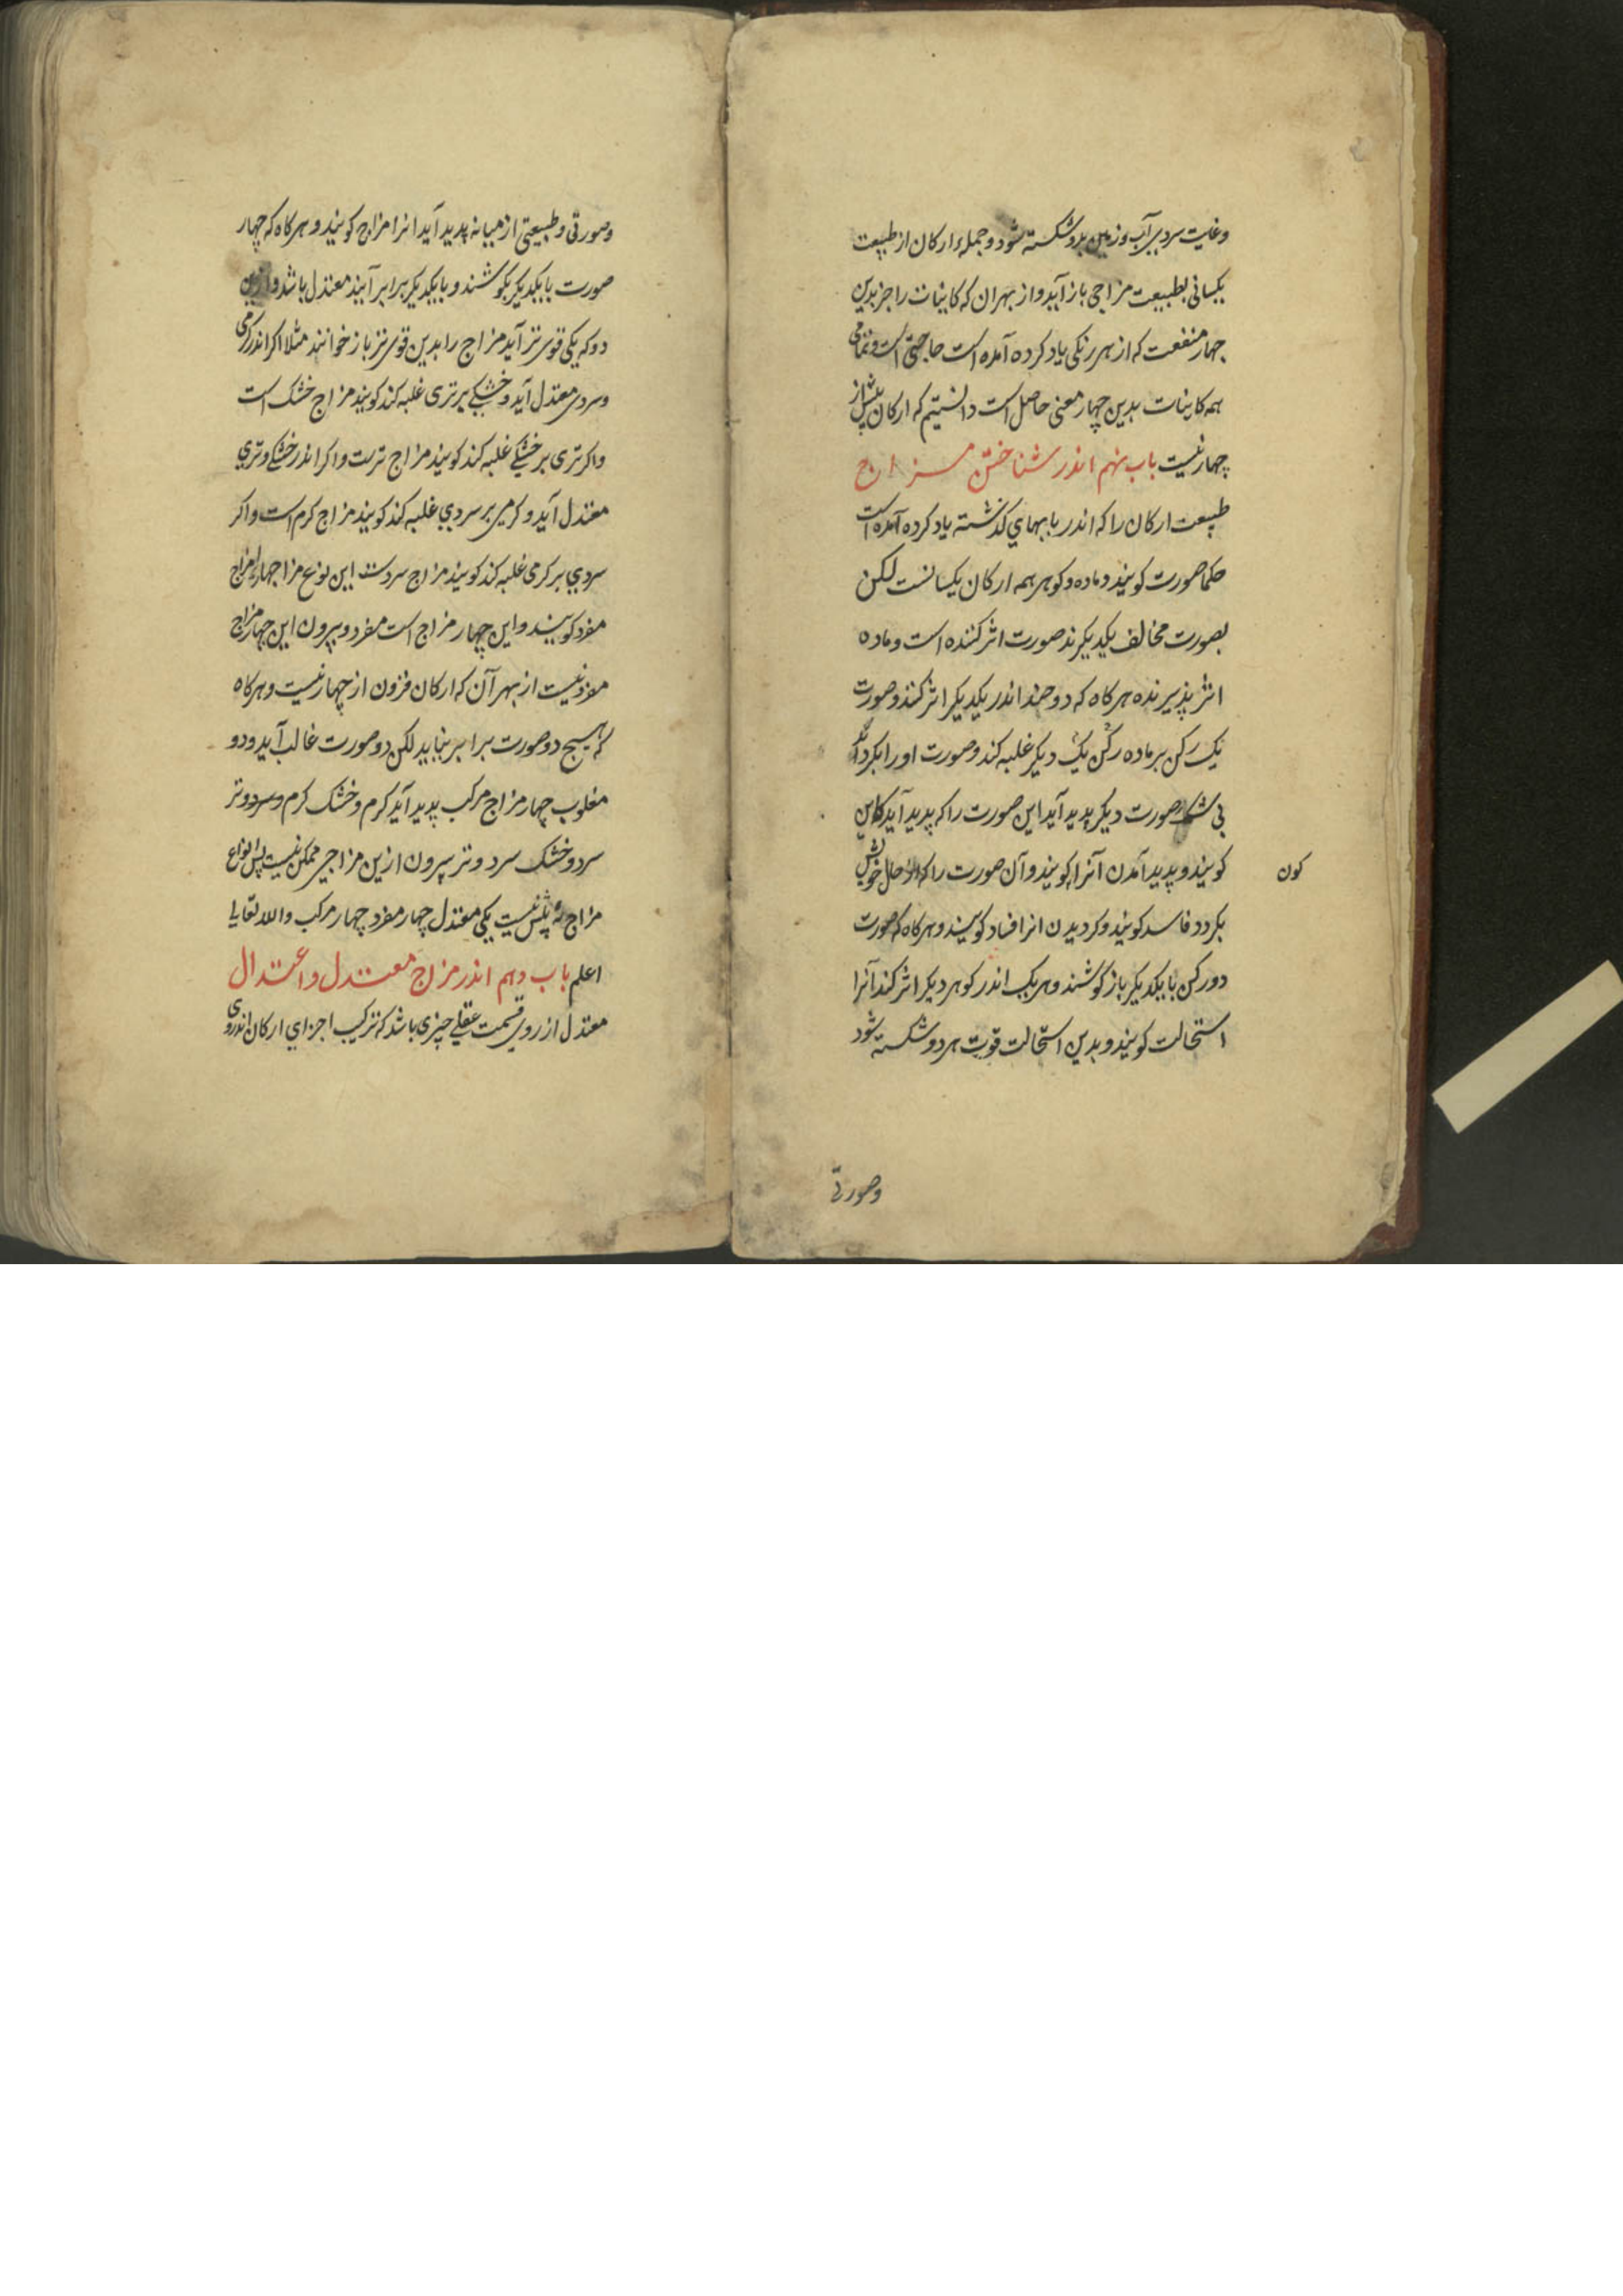 وغایت سردی آب وزمین بدو شکسته شود وجملهٔ ارکان از طبیعت
یکسانی بطبیعت مزاجی باز آید واز بهر ان که کاینات را جز بدین
چهار منفعت که از هر رکنی یاد کرده آمده است حاجتی است وتمامی
همه کاینات بدین چهار معنی حاصل است دانستیم که ارکان بیش از
چهار نیست باب نهم اندر شناختن مزاج
طبیعت ارکان را که اندر بابهای کذشته یاد کرده آمده است
حکما صورت کویند وماده وکوهر همه ارکان یکسانست لکن
بصورت مخالف یکدیکرند صورت اثر کننده است وماده
اثر پذیرنده هر کاه که دو ضد اندر یکدیکر اثر کنند وصورت
یک رکن بر ماده رکن یک دیکر غلبه کند وصورت اورا بکرداند
بی شک صورت دیکر پدید آید این صورت را که پدید آید کاین
کویند وپدید آمدن آنرا کویند وآن صورت را که از حال خویش
کون
بکردد فاسد کویند وکردیدن انرا فساد کویند وهر کاه که صورت
دو رکن با یکدیکر باز کوشند وهر یک اندر کوهر دیکر اثر کند آنرا
استحالت کویند وبدین استحالت قوت هر دو شکسته شود
وصورتی
وصورتی وطبیعتی از میانه پدید آید انرا مزاج کویند وهر کاه که چهار
صورت با یکدیکر بکوشند وبا یکدیکر برابر آیند معتدل باشد وازین
دو که یکی قوی تر آید مزاج را بدین قوی تر باز خوانند مثلا اکر اندر کرمی
وسردی معتدل آید وخشکی بر تری غلبه کند کویند مزاج خشک است
واکر تری بر خشکی غلبه کند کویند مزاج ترست واکر اندر خشکی وتری
معتدل آید وکرمی بر سردی غلبه کند کویند مزاج کرم است واکر
سردی بر کرمی غلبه کند کویند مزاج سردست این نوع مزاجها را مزاج
مفرد کویند واین چهار مزاج است مفرد وبیرون این چهار مزاج
مفرد نیست از بهر آن که ارکان فزون از چهار نیست وهر کاه
که هیچ دو صورت برابر نیاید لکن دو صورت غالب آید ودو
مغلوب چهار مزاج مرکب پدید آید کرم وخشک کرم وتر
سرد وخشک سرد وتر بیرون ازین مزاجی ممکن نیست پس انواع
مزاج نه بیش نیست یکی معتدل چهار مفرد چهار مرکب والله تعالی
اعلم باب دهم اندر مزاج معتدل واعتدال
معتدل از روی قسمت عقلی چیزی باشد که ترکیب اجزای ارکان اندروی